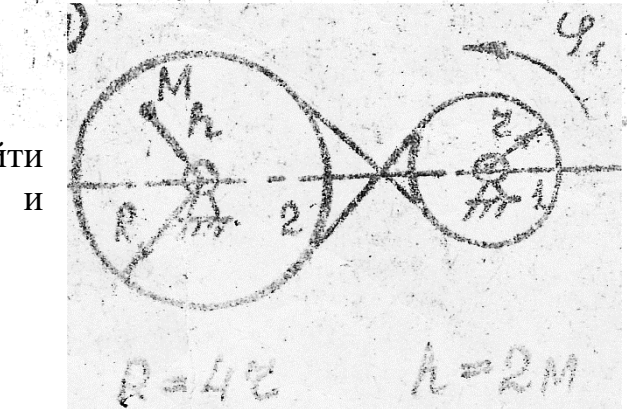 φ₁
M
h
йти
r
и
R
2
1
R = 4r
h = 2м